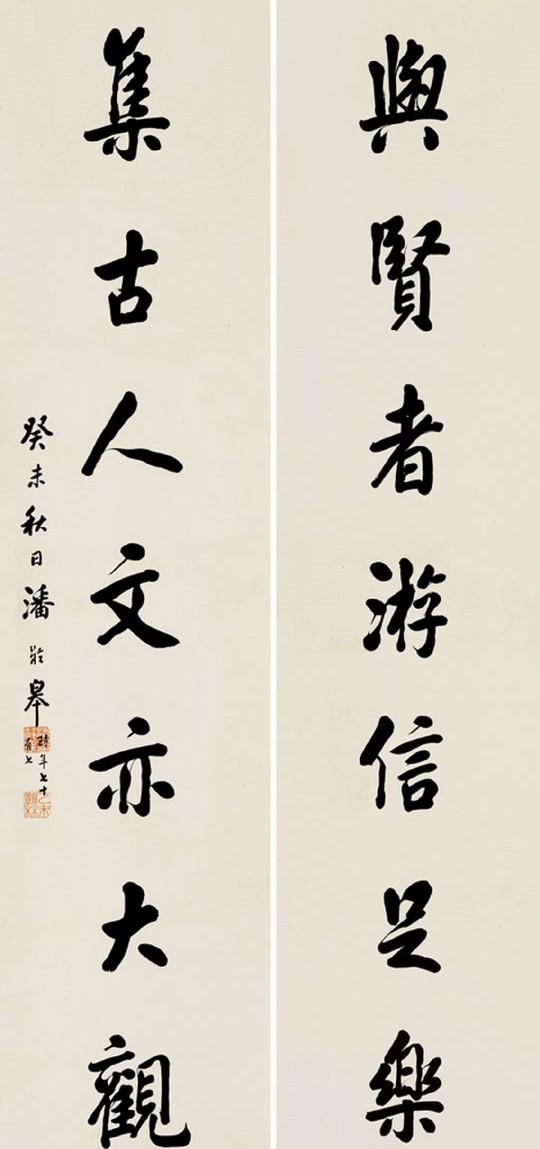 與賢者游信足樂
集古人文亦大觀
癸未秋日潘齡皋
時年七十有七